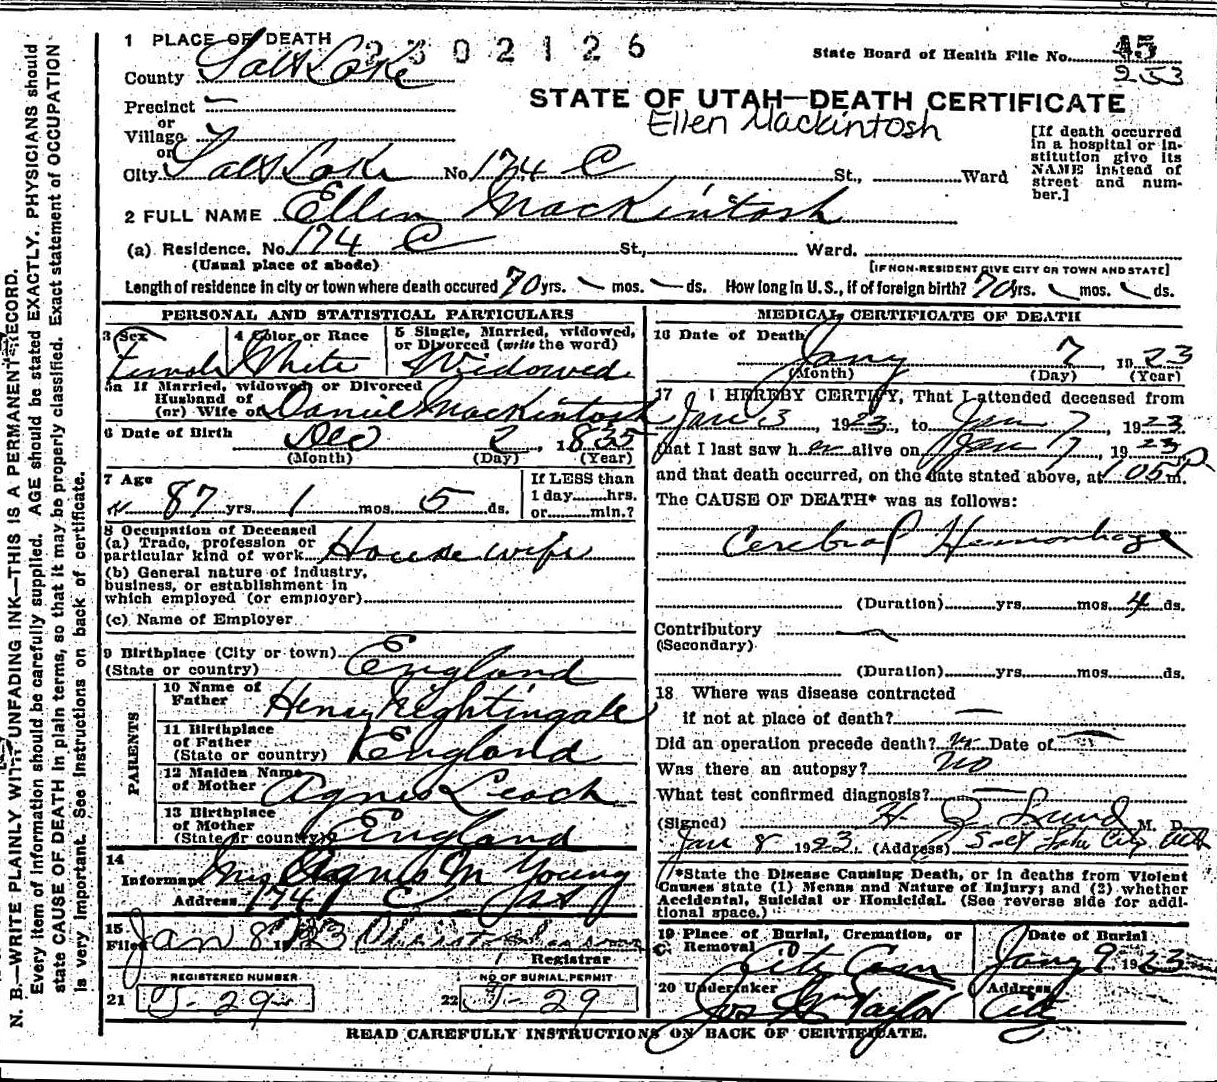 1 PLACE OF DEATH 2302126
State Board of Health File No. 45
253
County Salt Lake
STATE OF UTAH—DEATH CERTIFICATE
Ellen Mackintosh
Precinct
or
Village
or
City Salt Lake No. 174 C St., Ward
[If death occurred
in a hospital or in-
stitution give its
NAME instead of
street and num-
ber.]
2 FULL NAME Ellen Mackintosh
(a) Residence. No. 174 C St., Ward.
(Usual place of abode) [IF NON-RESIDENT GIVE CITY OR TOWN AND STATE]
Length of residence in city or town where death occured 70 yrs. mos. ds. How long in U.S., if of foreign birth? 70 yrs. mos. ds.
PERSONAL AND STATISTICAL PARTICULARS
3 Sex Female
4 Color or Race White
5 Single, Married, widowed,
or Divorced (write the word)
Widowed
5a If Married, widowed, or Divorced
Husband of
(or) Wife of Daniel Mackintosh
6 Date of Birth Dec 2, 1835
(Month) (Day) (Year)
7 Age 87 yrs. 1 mos. 5 ds.
If LESS than
1 day hrs.
or min.?
8 Occupation of Deceased
(a) Trade, profession or
particular kind of work House wife
(b) General nature of industry,
business, or establishment in
which employed (or employer)
(c) Name of Employer
9 Birthplace (City or town)
(State or country) England
PARENTS
10 Name of
Father Henry Nightingale
11 Birthplace
of Father
(State or country) England
12 Maiden Name
of Mother Agnes Leach
13 Birthplace
of Mother
(State or country) England
14
Informant Mrs Agnes M Young
Address 174 C St
15
Filed Jan 8 1923
Registrar
REGISTERED NUMBER
21 J-29
NO OF BURIAL PERMIT
22 J-29
MEDICAL CERTIFICATE OF DEATH
16 Date of Death
Jany 7 1923
(Month) (Day) (Year)
17 I HEREBY CERTIFY, That I attended deceased from
Jan 3, 1923, to Jan 7, 1923.
that I last saw her alive on Jan 7, 1923
and that death occurred, on the date stated above, at 105 P m.
The CAUSE OF DEATH* was as follows:
Cerebral Hemorrhage
(Duration) yrs. mos. 4 ds.
Contributory
(Secondary)
(Duration) yrs. mos. ds.
18 Where was disease contracted
if not at place of death?
Did an operation precede death? no Date of
Was there an autopsy? no
What test confirmed diagnosis?
(Signed) H. J. Lund M. D.
Jan 8 1923. (Address) Salt Lake City Utah
*State the Disease Causing Death, or in deaths from Violent
Causes state (1) Means and Nature of Injury; and (2) whether
Accidental, Suicidal or Homicidal. (See reverse side for addi-
tional space.)
19 Place of Burial, Cremation, or
Removal City Cem
Date of Burial
Jany 9 1923
20 Undertaker
Jos Wm Taylor
Address
City
READ CAREFULLY INSTRUCTIONS ON BACK OF CERTIFICATE.
N. B.—WRITE PLAINLY WITH UNFADING INK—THIS IS A PERMANENT RECORD.
Every item of information should be carefully supplied. AGE should be stated EXACTLY. PHYSICIANS should
state CAUSE OF DEATH in plain terms, so that it may be properly classified. Exact statement of OCCUPATION
is very important. See instructions on back of certificate.